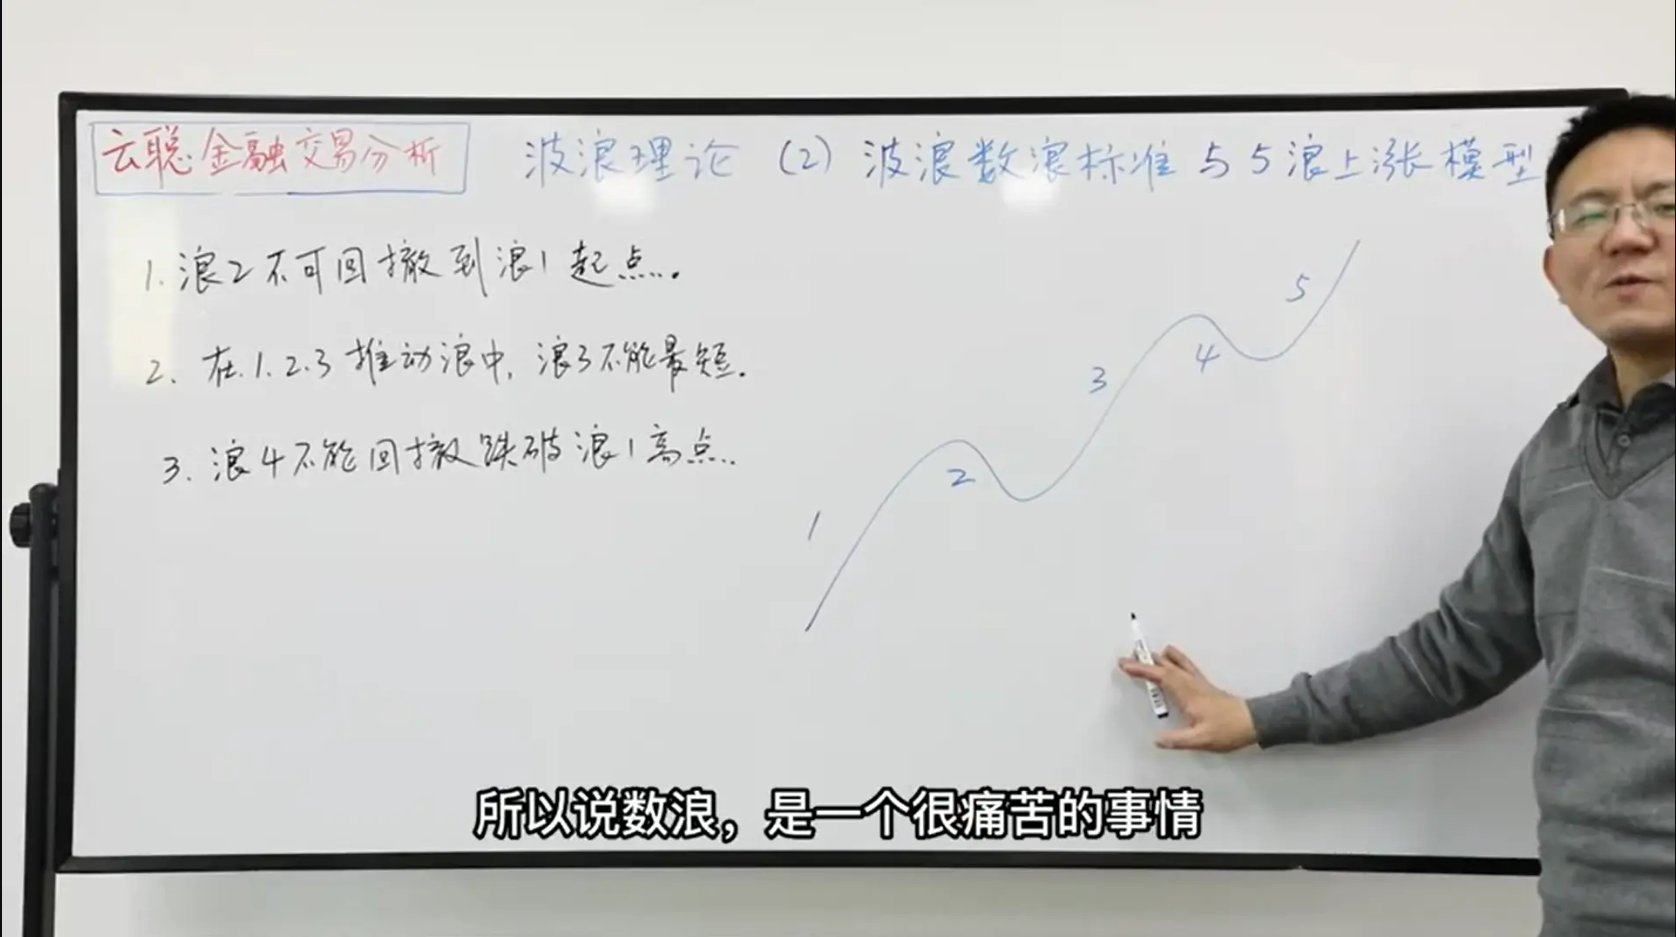 云聪金融交易分析
波浪理论 (2) 波浪数浪标准与5浪上涨模型
1. 浪2不可回撤到浪1起点.
2. 在1.2.3推动浪中, 浪3不能最短.
3. 浪4不能回撤跌破浪1高点..
1
2
3
4
5
所以说数浪，是一个很痛苦的事情